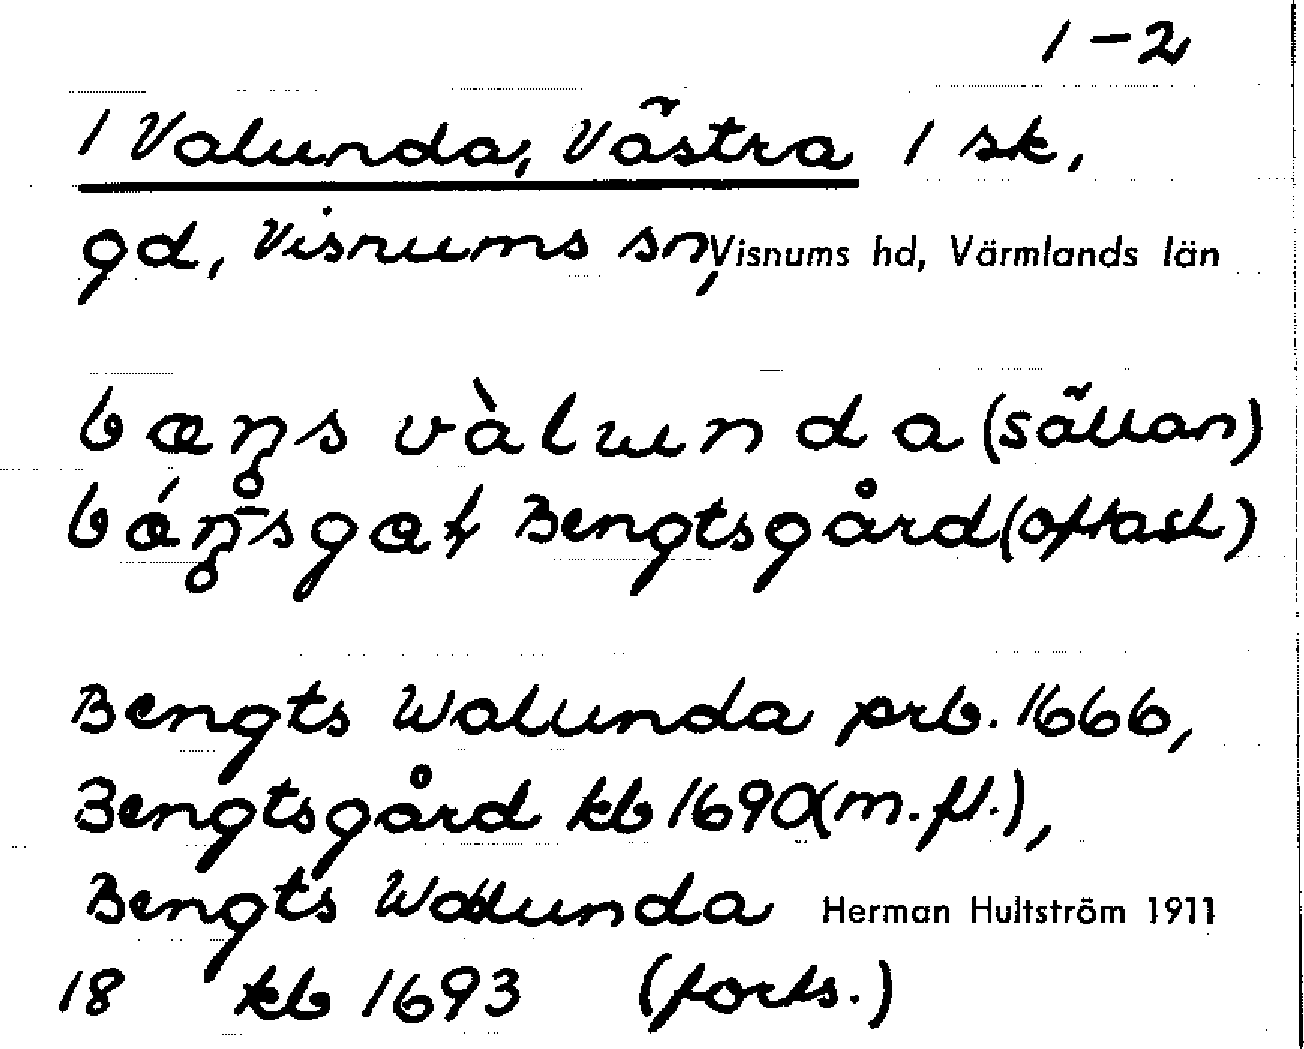 1-2
1 Valunda, Västra 1 sk,
gd, Visnums sn, Visnums hd, Värmlands län
vàlunda (sällan)
Bengtsgård (oftast)
Bengts Walunda prb. 1666,
Bengtsgård kb 1690 (m.fl.),
Bengts Walunda Herman Hultström 1911
18 kb 1693 (forts.)